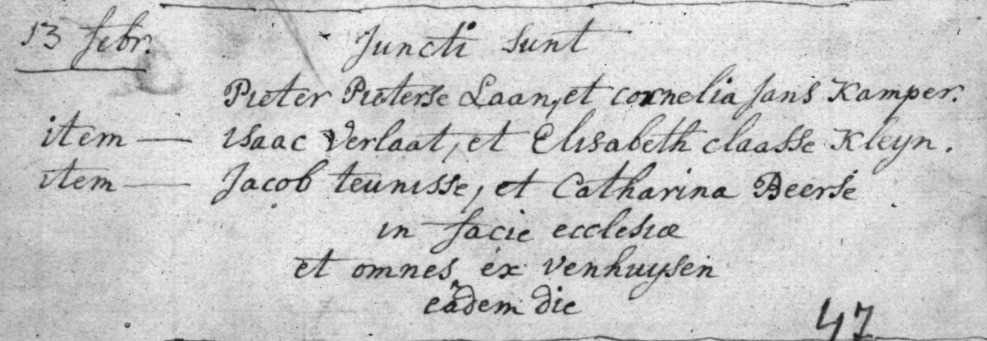 13 febr. Juncti sunt
Pieter Pieterse Laan, et cornelia Jans Kamper.
item — isaac Verlaat, et Elisabeth claasse Kleyn.
item — Jacob teunisse, et Catharina Beerse
in facie ecclesiæ
et omnes ex venhuysen
eâdem die
47